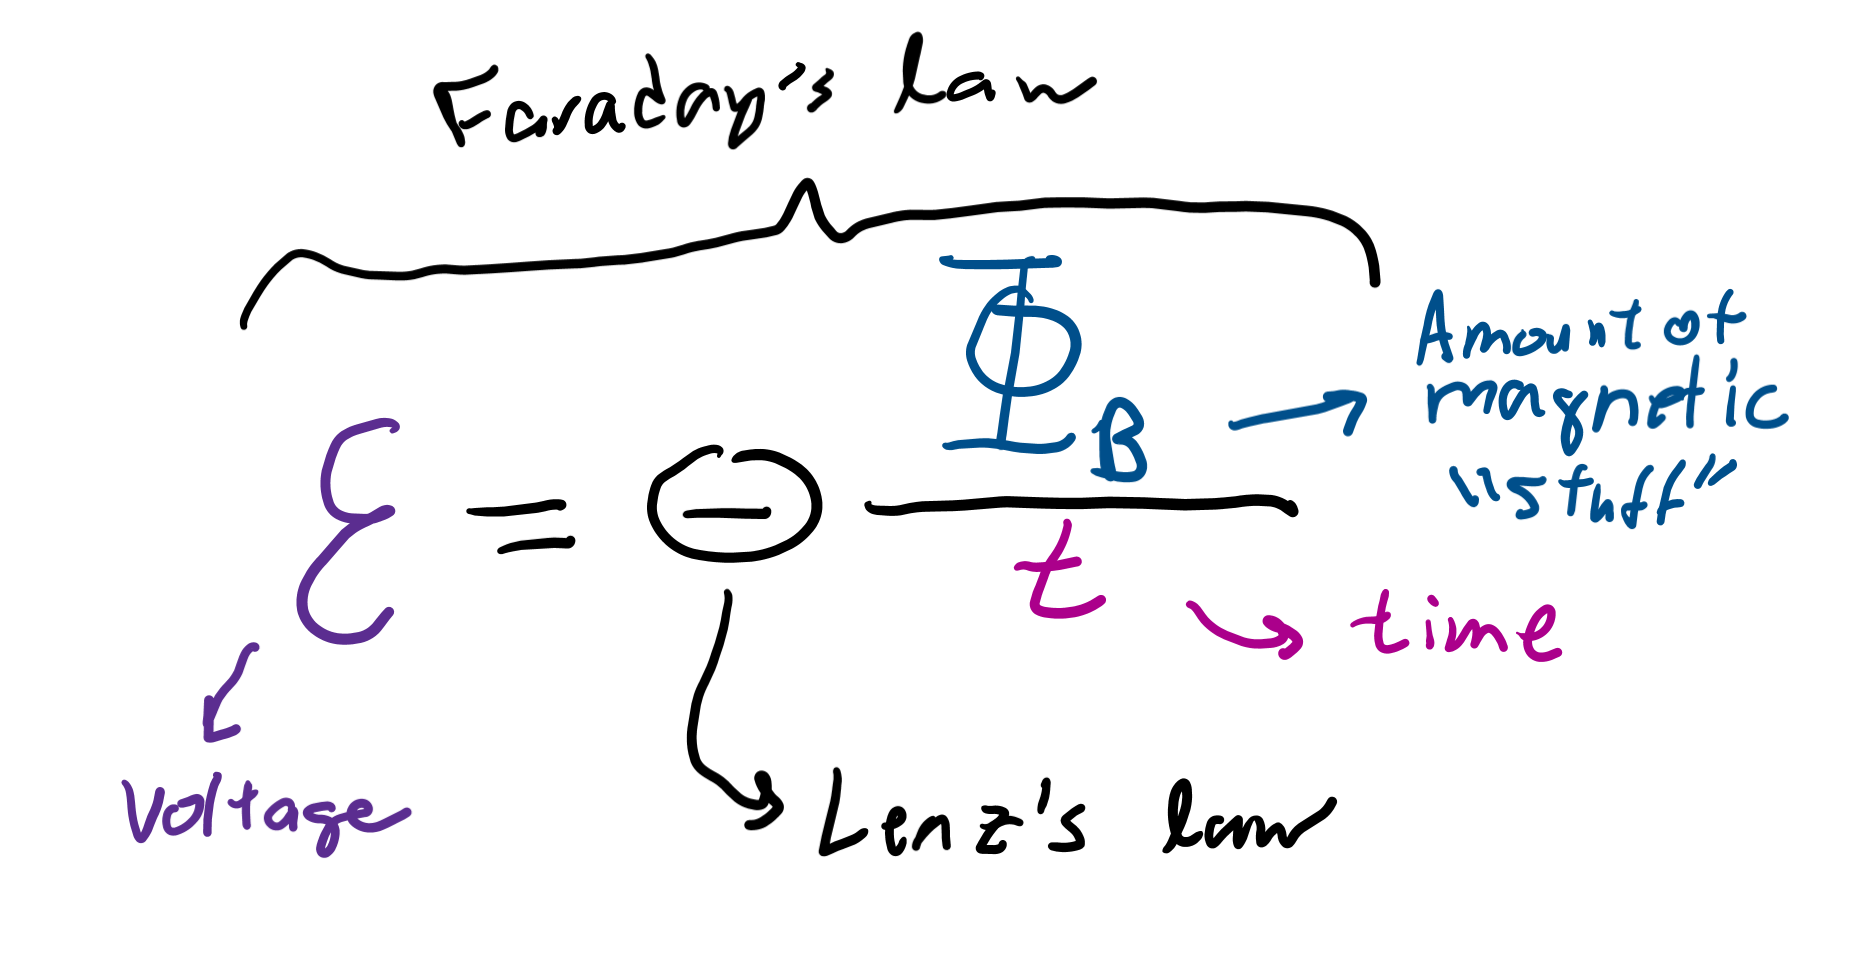 Faraday's law
ℰ = − Φ_B / t
Amount of
magnetic
"stuff"
time
Voltage
Lenz's law